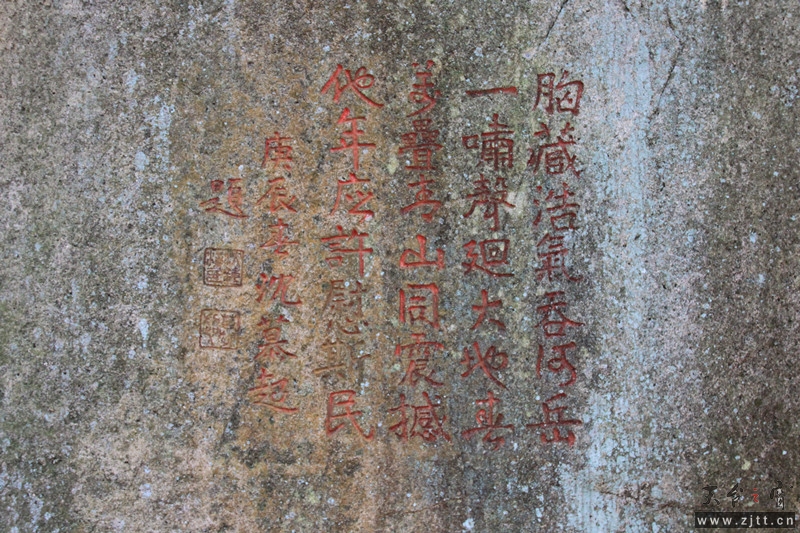 胸藏浩氣吞河岳
一嘯聲廻大地春
萬疊青山同震撼
他年应許慰斯民
庚辰春沈慕起
題
www.zjtt.cn